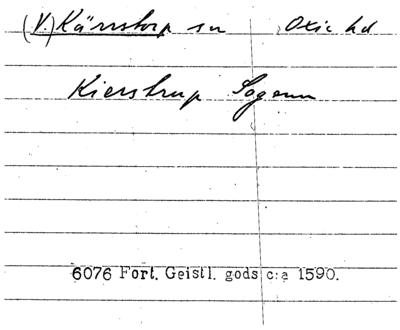 (V.) Kärrstorp sn Oxie hd
Kierstrup Sogenn
6076 Fort. Geistl. gods c:a 1590.